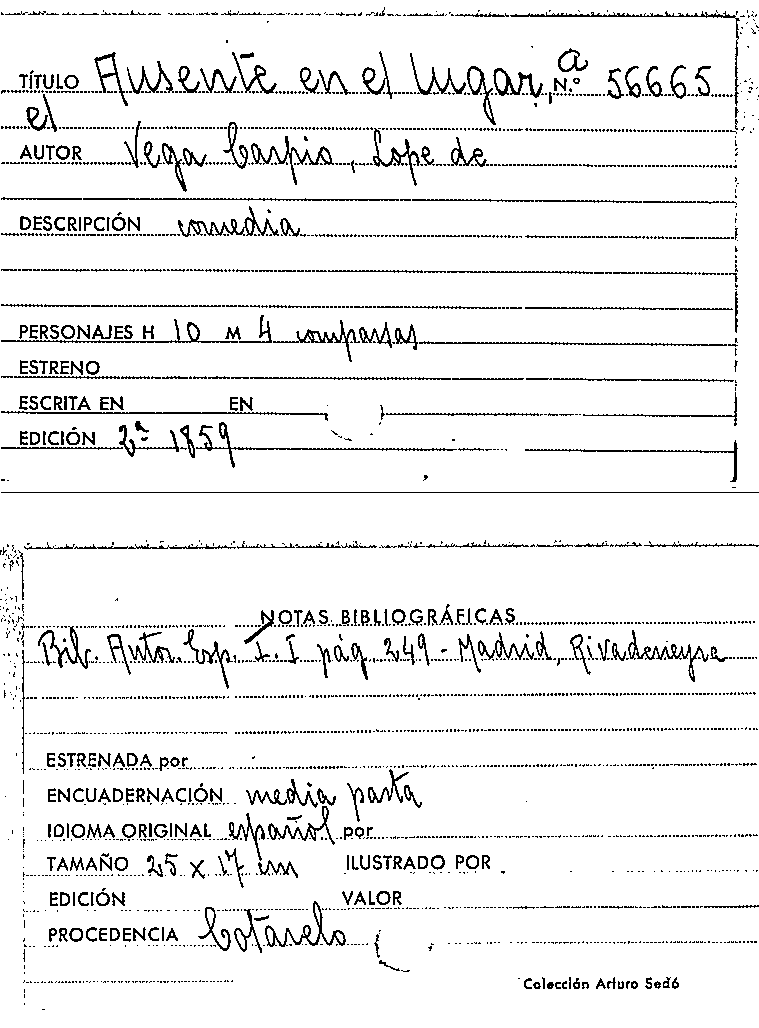 TÍTULO Ausente en el lugar, a N.º 56665
el
AUTOR Vega Carpio, Lope de
DESCRIPCIÓN comedia
PERSONAJES H 10 M 4 comparsas
ESTRENO
ESCRITA EN EN
EDICIÓN 2ª 1859
NOTAS BIBLIOGRÁFICAS
Bib. Autor. Esp. I. I pág 249 - Madrid, Rivadeneyra
ESTRENADA por
ENCUADERNACIÓN media pasta
IDIOMA ORIGINAL español por
TAMAÑO 25 x 17 cm ILUSTRADO POR
EDICIÓN VALOR
PROCEDENCIA Cotarelo
Colección Arturo Sedó